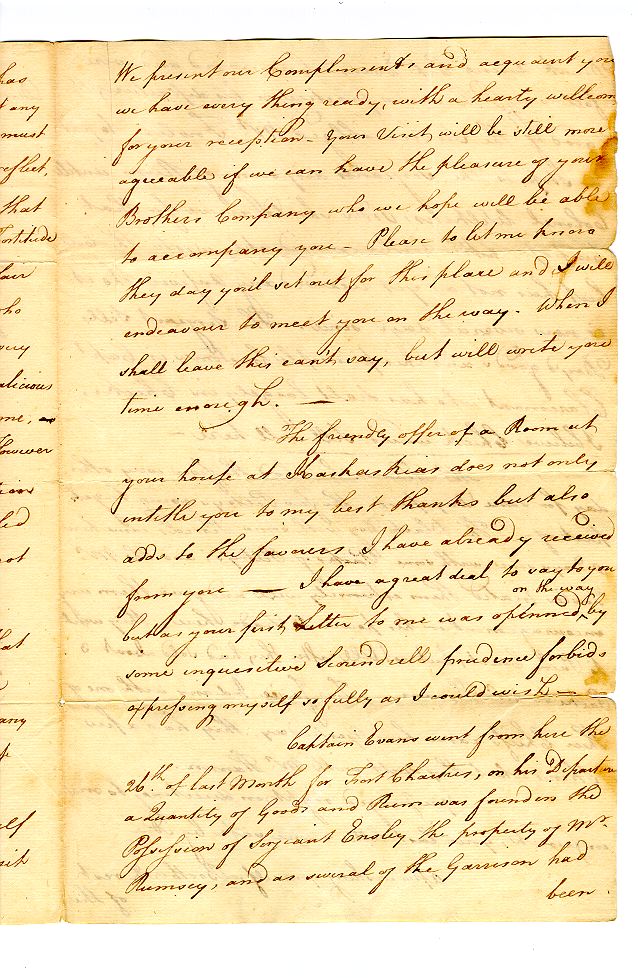 has
any
must
reflect,
that
Fortitude
fair
who
very
malicious
me, —
However
led
not
that
any
self
We present our Complements and acquaint you
we have every thing ready, with a hearty wellcom
for your reception – Your Visit will be still more
agreeable if we can have the pleasure of your
Brothers Company who we hope will be able
to accompany you – Please to let me know
they day you'l set out for this place and I will
endeavour to meet you on the way. When I
shall leave this can't say, but will write you
time enough. —
The friendly offer of a Room at
your house at Kaskaskias does not only
intitle you to my best thanks but also
adds to the favours I have already received
from you — I have a great deal to say to you
on the way
but as your first Letter to me was opinned ^ by
some inquesitive Scoundrell prudence forbids
expressing myself so fully as I could wish —
Captain Evans went from here the
26th. of last Month for Fort Chartres, on his Departure
a Quantity of Goods and Rum was found in the
Possession of Serjeant Ensley the property of Mr.
Rumsey, and as several of the Garrison had
been